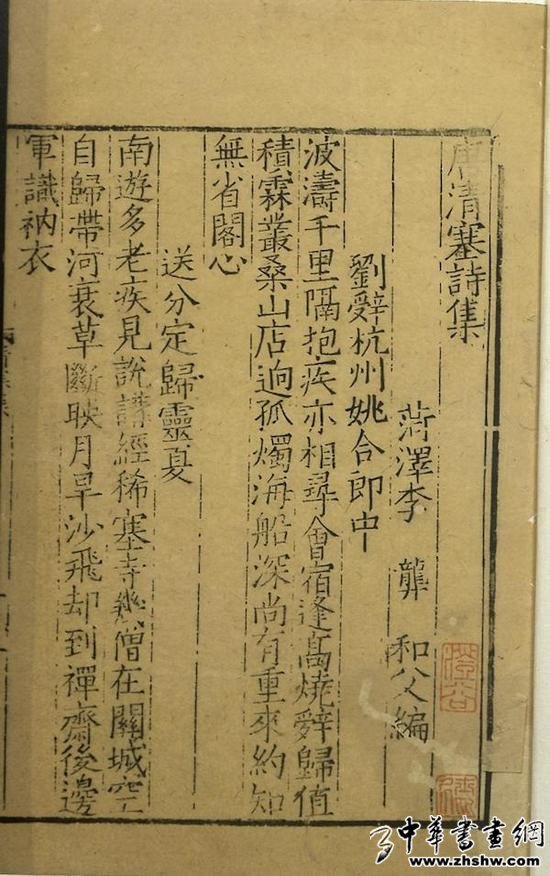 唐清塞詩集
菏澤李 龏 和父編
劉辭杭州姚合郎中
波濤千里隔抱疾亦相尋會宿逢高燒辭歸值
積霖叢桑山店迥孤燭海船深尚有重來約知
無省閣心
送分定歸靈夏
南遊多老疾見說講經稀塞寺幾僧在關城空
自歸帶河衰草斷映月旱沙飛却到禪齋後邊
軍識衲衣
中華書畫網
www.zhshw.com